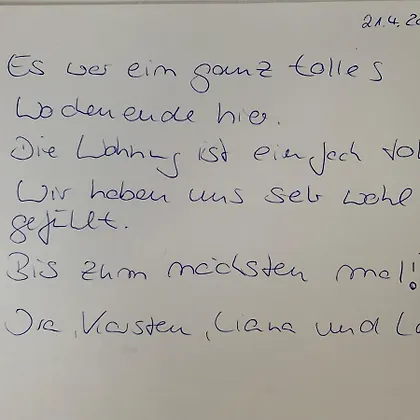 21.4.20
Es war ein ganz tolles
Wochenende hier.
Die Wohnung ist einfach tol
Wir haben uns sehr wohl
gefühlt.
Bis zum nächsten mal!
Ira, Karsten, Liana und